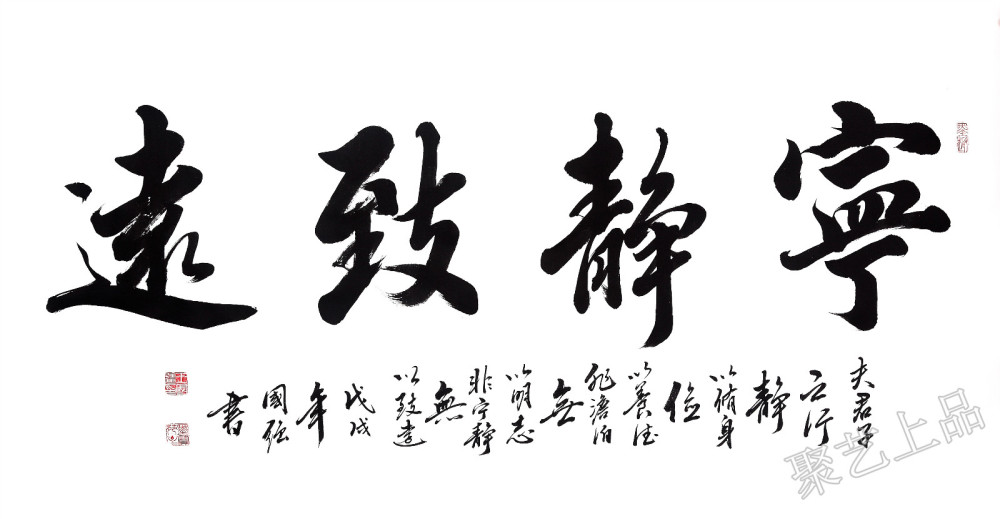 寧靜致遠
夫君子
之行
靜
以脩身
儉
以養德
非澹泊
無
以明志
非宁靜
無
以致遠
戊戌
年
國強
書
聚艺上品